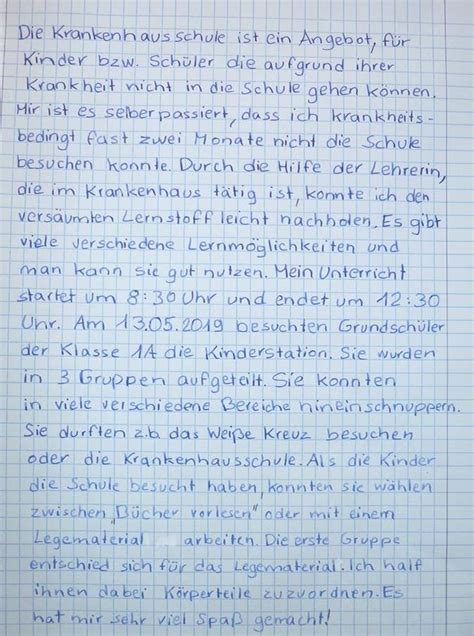 Die Krankenhausschule ist ein Angebot, für
Kinder bzw. Schüler die aufgrund ihrer
Krankheit nicht in die Schule gehen können.
Mir ist es selber passiert, dass ich krankheits-
bedingt fast zwei Monate nicht die Schule
besuchen konnte. Durch die Hilfe der Lehrerin,
die im Krankenhaus tätig ist, konnte ich den
versäumten Lernstoff leicht nachholen. Es gibt
viele verschiedene Lernmöglichkeiten und
man kann sie gut nutzen. Mein Unterricht
startet um 8:30 Uhr und endet um 12:30
Uhr. Am 13.05.2019 besuchten Grundschüler
der Klasse 1A die Kinderstation. Sie wurden
in 3 Gruppen aufgeteilt. Sie konnten
in viele verschiedene Bereiche hineinschnuppern.
Sie durften z.b das Weiße Kreuz besuchen
oder die Krankenhausschule. Als die Kinder
die Schule besucht haben, konnten sie wählen
zwischen „Bücher vorlesen" oder mit einem
Legematerial arbeiten. Die erste Gruppe
entschied sich für das Legematerial. Ich half
ihnen dabei Körperteile zuzuordnen. Es
hat mir sehr viel Spaß gemacht!